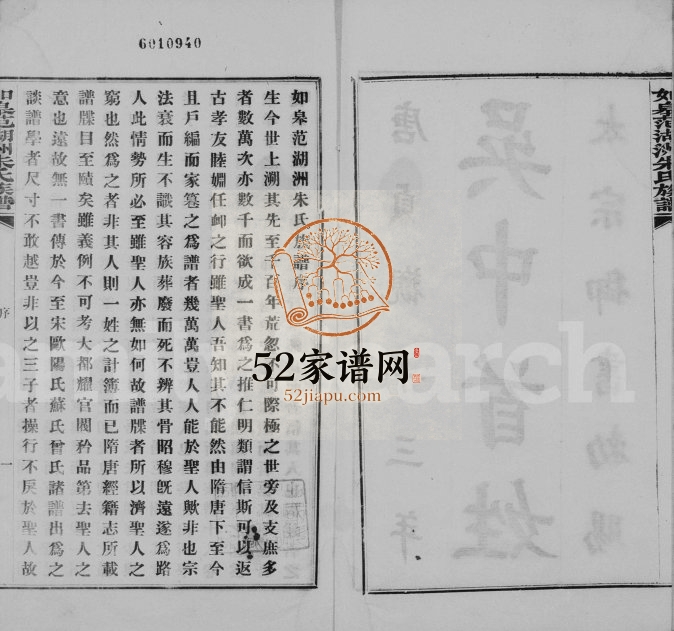 6010940
如皋范湖洲朱氏族譜
太宗御書勅賜
吴中首姓
唐貞觀三年
如皋范湖洲朱氏族譜序
生今世上溯其先至千百年荒忽不可際極之世旁及支庶多
者數萬次亦數千而欲成一書爲之推仁明類謂信斯可以返
古孝友睦婣任卹之行雖聖人吾知其不能然由隋唐下至今
且戶編而家篹之爲譜者幾萬萬豈人人能於聖人歟非也宗
法衰而生不識其容族葬廢而死不辨其骨昭穆旣遠遂爲路
人此情勢所必至雖聖人亦無如何故譜牒者所以濟聖人之
窮也然爲之者非其人則一姓之計簿而已隋唐經籍志所載
譜牒目至賾矣雖義例不可考大都耀官閥矜品第去聖人之
意也遠故無一書傳於今至宋歐陽氏蘇氏曾氏諸譜出爲之
談譜學者尺寸不敢越豈非以之三子者操行不戾於聖人故
如皋范湖洲朱氏族譜
序
一
52家谱网
52jiapu.com
arch